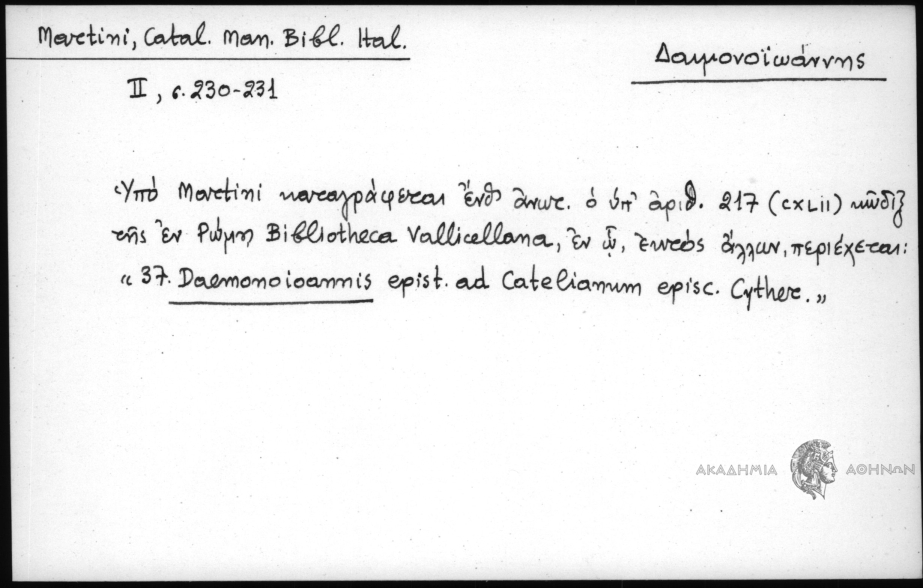 Martini, Catal. Man. Bibl. Ital.
Δαιμονοϊωάννης
II, σ. 230-231
Ὑπὸ Martini καταγράφεται ἔνθ' ἀνωτ. ὁ ὑπ' ἀριθ. 217 (CXLII) κῶδιξ
τῆς ἐν Ρώμῃ Bibliotheca Vallicellana, ἐν ᾧ, ἐκτὸς ἄλλων, περιέχεται:
"37. Daemonoioannis epist. ad Catelianum episc. Cyther."
ΑΚΑΔΗΜΙΑ ΑΘΗΝΩΝ